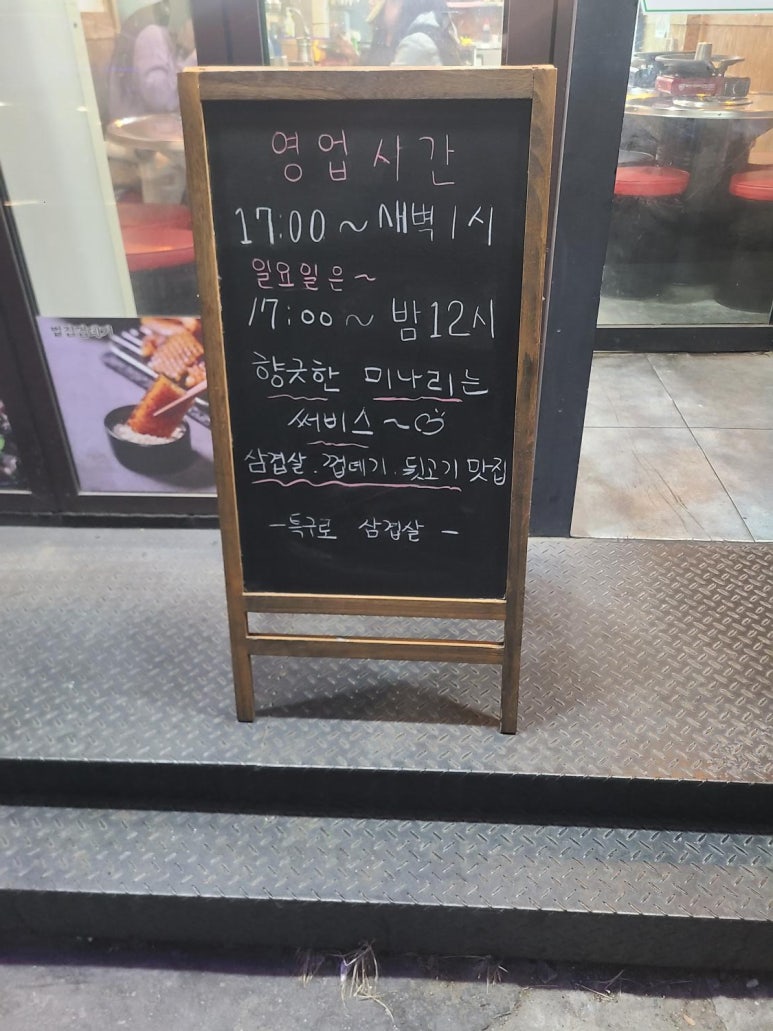 영업시간
17:00 ~ 새벽 1시
일요일은~
17:00 ~ 밤 12시
향긋한 미나리는
써비스~
삼겹살. 껍데기. 뒷고기 맛집
- 특구로 삼겹살 -
벌집껍데기